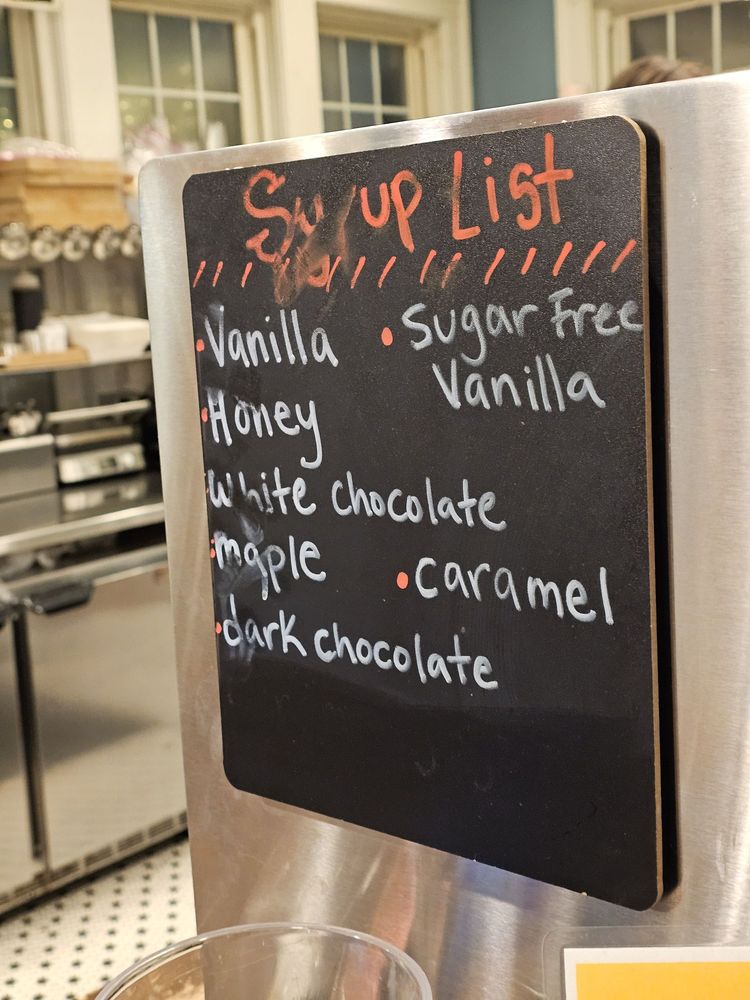 Syrup List
Vanilla
Sugar Free
Vanilla
Honey
White chocolate
maple
caramel
dark chocolate